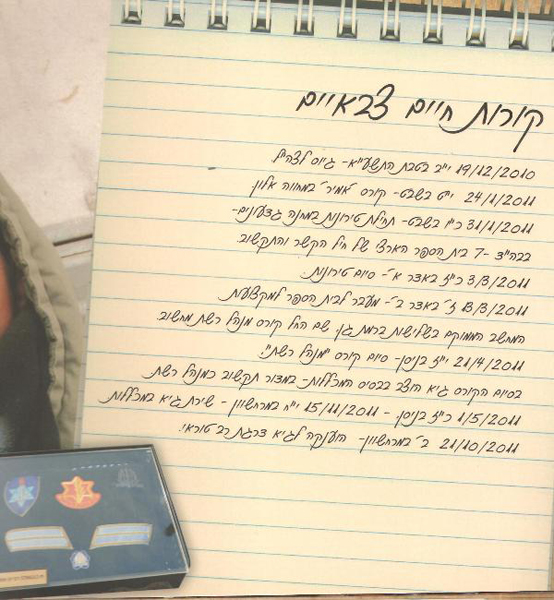 קורות חיים צבאיים
19/12/2010 י״ב בטבת התשע״א- גיוס לצה״ל
24/1/2011 י״ט בשבט- קורס "אמיר" בחווה אלון
31/1/2011 כ״ו בשבט- תחילת טירונות במחנה גדעונים-
בבה״ד -7 בית הספר הארצי של חיל הקשר והתקשוב
3/3/2011 כ״ז באדר א׳- סיום טירונות.
13/3/2011 ז׳ באדר ב׳- מעבר לבית הספר למקצועות
המחשב הממוקם בשלישות ברמת גן, שם החל קורס מנהל רשת מחשוב.
21/4/2011 י״ז בניסן- סיום קורס "מנהל רשת".
בסיום הקורס גיא הוצב בבסיס המכללות- במדור תקשוב כמנהל רשת.
1/5/2011 כ״ז בניסן. - 15/11/2011 י״ח במרחשוון - שירת גיא במכללות.
21/10/2011 ב׳ במרחשוון- הוענקה לגיא דרגת רב טוראי.